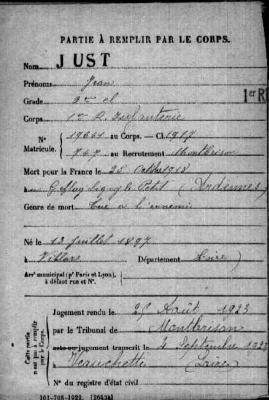 PARTIE À REMPLIR PAR LE CORPS.
Nom JUST
Prénoms Jean
Grade 2e cl
1er R
Corps 1er R. Infanterie
N° 19661 au Corps. — Cl. 1917
Matricule. 767 au Recrutement Montbrison
Mort pour la France le 25 Octobre 1918
à Petit (Ardennes)
Genre de mort Tué à l'ennemi
Né le 12 Juillet 1897
à Villars Département Loire
Arr' municipal (p' Paris et Lyon),
à défaut rue et N°.
Cette partie
n'est pas à remplir
par le Corps.
Jugement rendu le 25 Août 1923
par le Tribunal de Montbrison
acte ou jugement transcrit le 2 Septembre 1923
à Veauchette (Loire)
N° du registre d'état civil
101-708-1922. [26434]